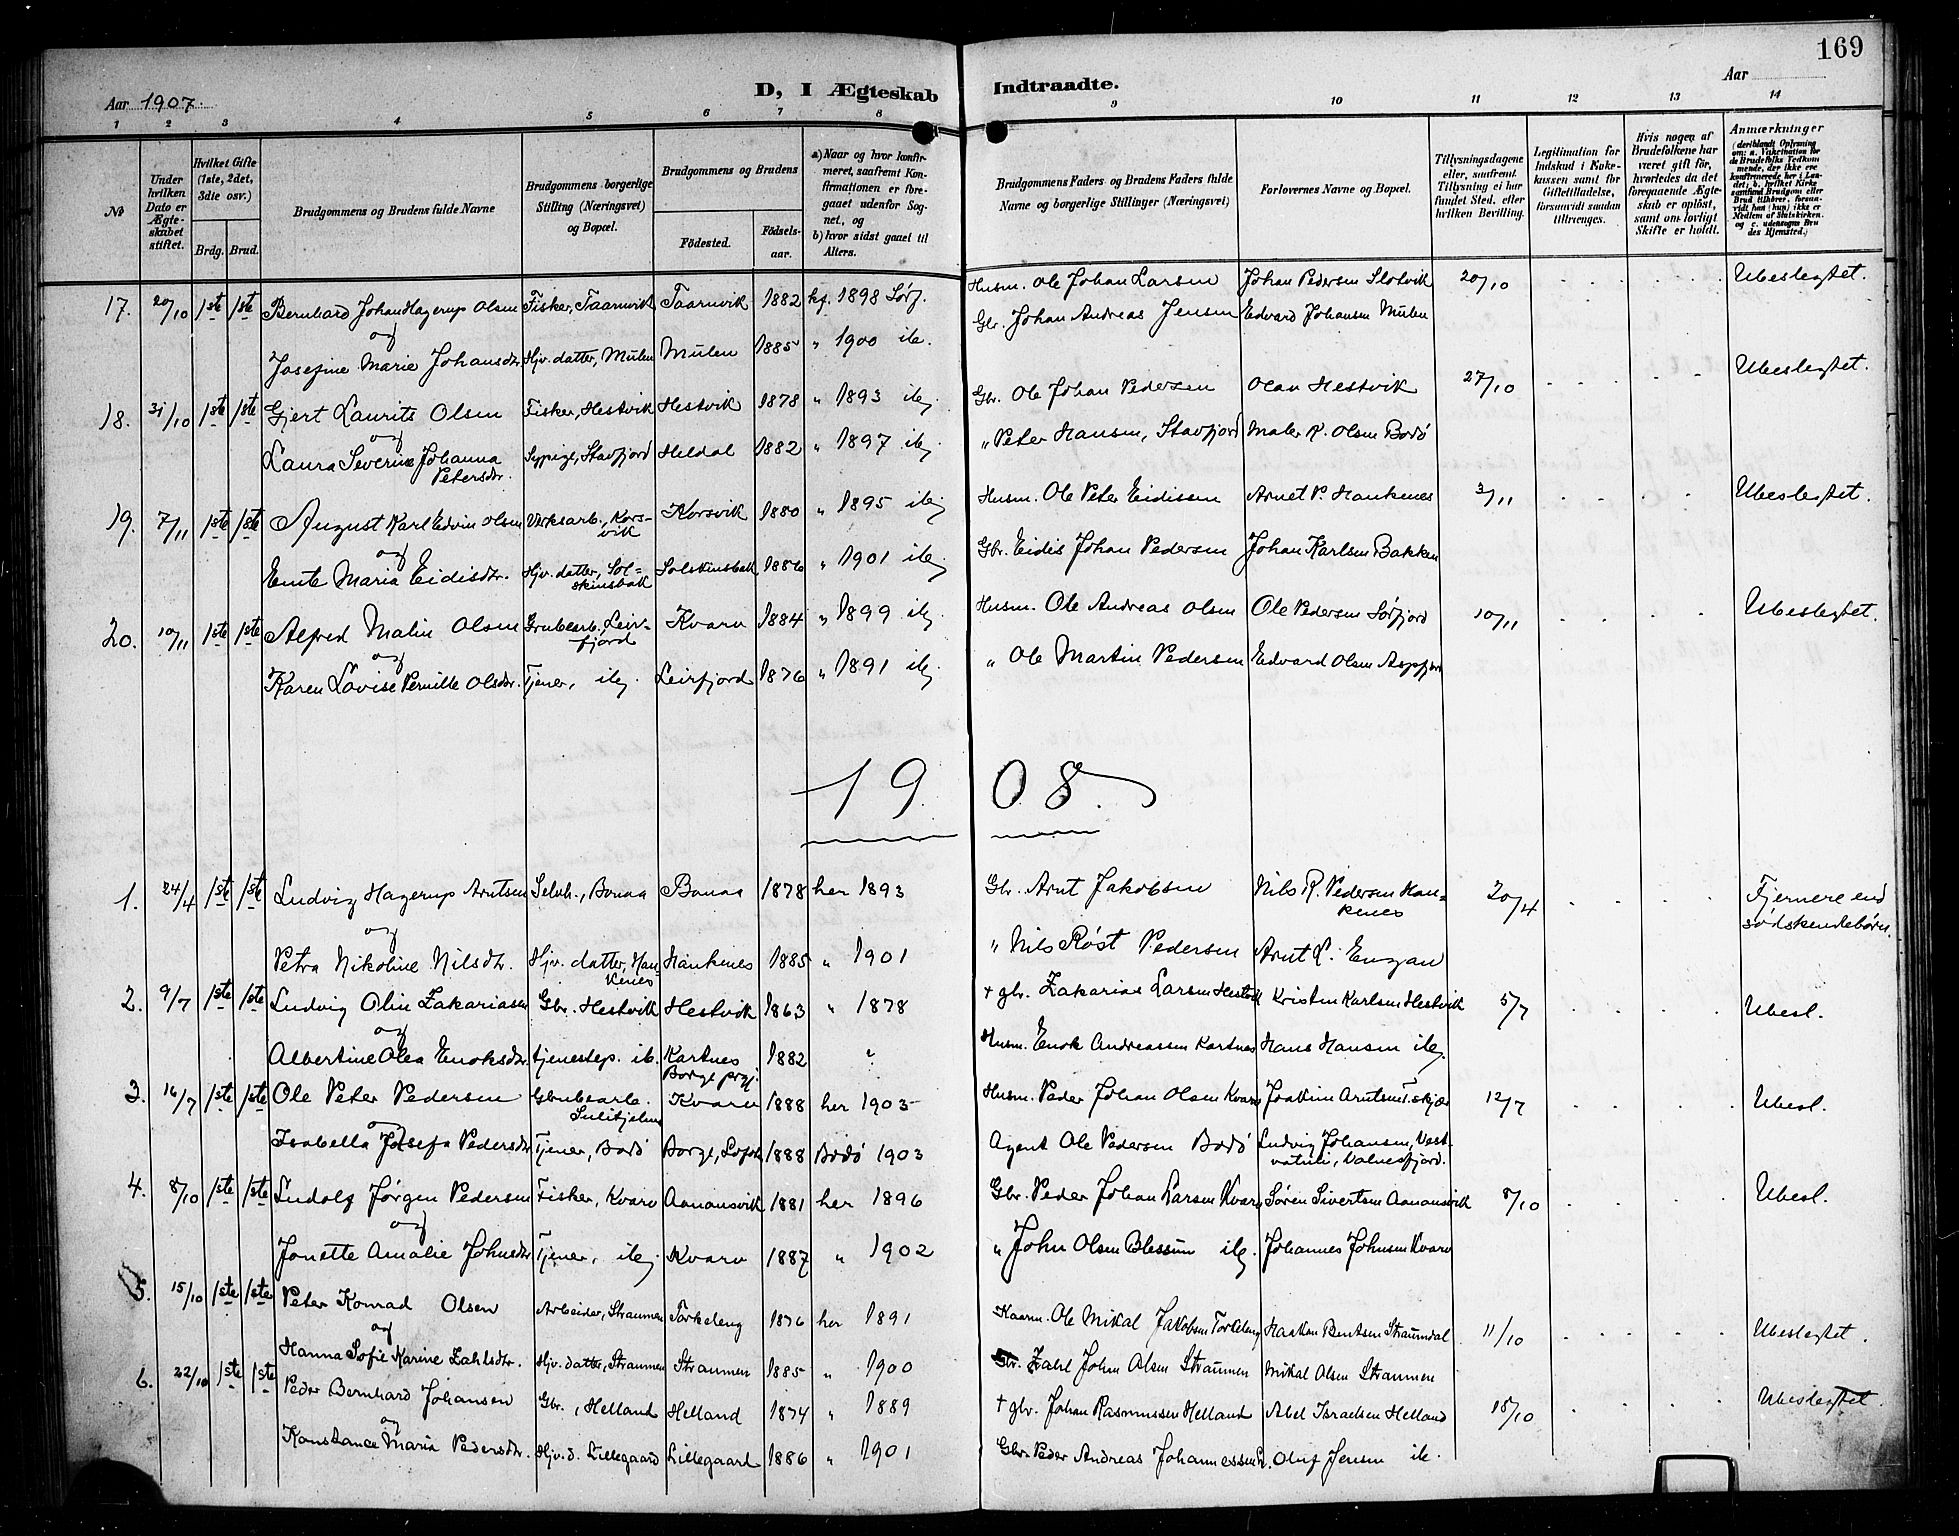 169
Aar 1907.
D, I Ægteskab Indtraadte.
Aar
1 2 3 4 5 6 7 8 9 10 11 12 13 14
No
Under hvilken Dato er Ægteskabet stiftet.
Hvilket Gifte (1ste, 2det, 3die osv.)
Brdg. Brud.
Brudgommens og Brudens fulde Navne
Brudgommens borgerlige Stilling (Næringsvei) og Bopæl.
Brudgommens og Brudens
Födested. Födselsaar.
a) Naar og hvor konfirmeret, saafremt Konfirmationen er foregaaet udenfor Sognet, og
b) hvor sidst gaaet til Alters.
Brudgommens Faders og Brudens Faders fulde Navne og borgerlige Stillinger (Næringsvei)
Forlovernes Navne og Bopæl.
Tillysningsdagene eller, saafremt Tillysning ei har fundet Sted, efter hvilken Bevilling.
Legitimation for Indskud i Enkekassen samt for Giftetilladelse, forsaavidt saadan tiltrænges.
Hvis nogen af Brudefolkene har været gift för, hvorledes da det foregaaende Ægteskab er oplöst, samt om lovligt Skifte er holdt.
Anmærkninger
17. 20/10 1ste 1ste Bernhard Johan Hagerup Olsen Fisker, Taarnvik Taarnvik 1882 kf. 1898 Sørf. Husm. Ole Johan Larsen Johan Pedersen Slotvik 20/10 Ubeslegtet.
og
Josefine Marie Johansdr. Hjv. datter, Mulen Mulen 1885 " 1900 ib. Gbr. Johan Andreas Jensen Edvard Johansen Mulen
18. 31/10 1ste 1ste Gjert Laurits Olsen Fisker, Hestvik Hestvik 1878 " 1893 ib. Gbr. Ole Johan Pedersen Olav Hestvik 27/10 Ubeslegtet.
og
Laura Severine Johanna Petersdr. Sypige, Stavfjord Heldal 1882 " 1897 ib. " Peter Hansen, Stavfjord Maler K. Olsen Bodø
19. 7/11 1ste 1ste August Karl Edvin Olsen Verksarb., Korsvik Korsvik 1880 " 1895 ib. Husm. Ole Peter Eidissen Arnet P. Hankenes 3/11 Ubeslegtet.
og
Emte Maria Eidisdr. Hjv. datter, Solskinsbak Solskinsbak 1886 " 1901 ib. Gbr. Eidis Johan Pedersen Johan Karlsen Bakken
20. 10/11 1ste 1ste Alfred Malin Olsen Grubearb., Leirfjord Kvarv 1884 " 1899 ib. Husm. Ole Andreas Olsen Ole Pedersen Sørfjord 10/11 Ubeslegtet.
og
Karen Lovise Pernille Olsdr. Tjener, ib. Leirfjord 1876 " 1891 ib. " Ole Martin Pedersen Edvard Olsen Aspfjord
1908.
1. 24/4 1ste 1ste Ludvig Hagerup Arntsen Selvh., Bonaa Bonaa 1878 her 1893 Gbr. Arnt Jakobsen Nils R. Pedersen Hankenes 20/4 Fjernere end sødskendebørn.
og
Petra Nikoline Nilsdr. Hjv. datter, Hankenes Hankenes 1885 " 1901 " Nils Røst Pedersen Arnt L. Engan
2. 9/7 1ste 1ste Ludvig Olin Zakariasen Gbr. Hestvik Hestvik 1863 " 1878 + gbr. Zakarias Larsen Hestvik Kristen Karlsen Hestvik 5/7 Ubesl.
og
Albertine Olea Enoksdr. tjenestep. ib. Kartnes Borge prgj. 1882 " Husm. Enok Andreassen Kartnes Hans Hansen ib.
3. 16/7 1ste 1ste Ole Peter Pedersen Grubearb. Sulitjelma Kvarv 1888 her 1903 Husm. Peder Johan Olsen Kvarv Joakim Arntsen 12/7 Ubesl.
og
Isabella Josefa Pedersdr. Tjener, Bodø Borge, Lofoten 1888 Bodø 1903 Agent Ole Pedersen Bodø Ludvig Johansen, Vestvatnli, Valnesfjord.
4. 8/10 1ste 1ste Ludolg Jørgen Pedersen Fisker, Kvarv Aanansvik 1881 her 1896 Gbr. Peder Johan Larsen Kvarv Søren Sivertsen Aanansvik 8/10 Ubesl.
og
Jonette Amalie Johnsdr. Tjener, ib. Kvarv 1887 " 1902 " John Olsen Blessum ib. Johannes Johnsen Kvarv
5. 15/10 1ste 1ste Peter Konrad Olsen Arbeider, Straumen Torkeleng 1876 her 1891 Kaarm. Ole Mikal Jakobsen Torkeleng Haakon Bentsen Straumdal 11/10 Ubeslegtet.
og
Hanna Sofie Karine Zahlsdr. Hjv. datter, Straumen Straumen 1885 " 1900 Gbr. Zahl John Olsen Straumen Mikal Olsen Straumen
6. 22/10 1ste 1ste Peder Bernhard Johansen Gbr., Helland Helland 1874 " 1889 + gbr. Johan Rasmussen Helland Abel Israelsen Helland 18/10 Ubeslegtet.
og
Konstance Maria Pedersdr. Hjv. d. Lillegaard Lillegaard 1886 " 1901 Gbr. Peder Andreas Johannessen Oluf Jensen ib.